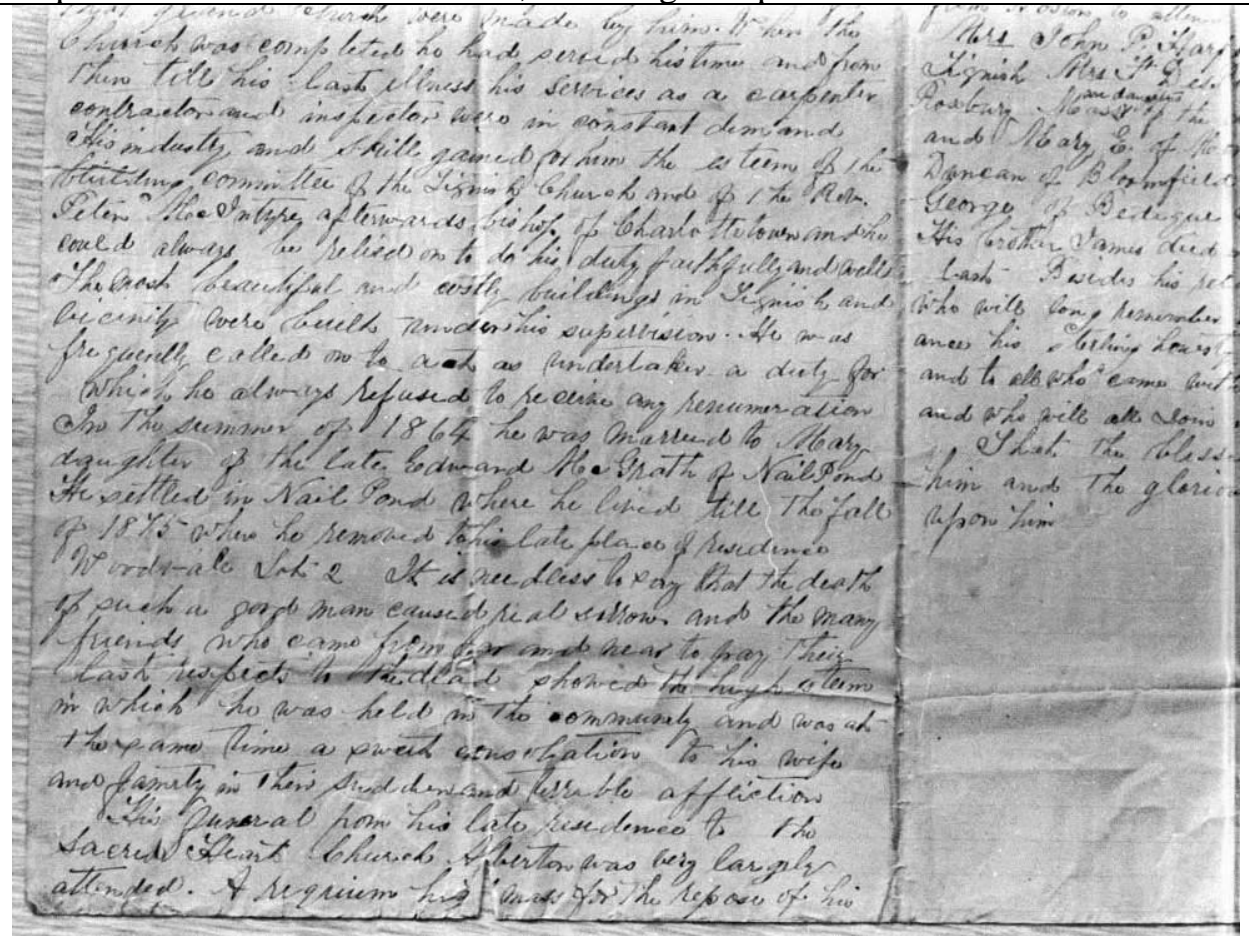 Church were made by him. When the
Church was completed he had served his time and from
then till his last illness his services as a carpenter
contractor and inspector were in constant demand
His industry and skill gained for him the esteem of the
building committee of the Tignish Church and of the Rev.
Peter McIntyre afterwards bishop of Charlottetown and who
could always be relied on to do his duty faithfully and well
The most beautiful and costly buildings in Tignish and
vicinity were built under his supervision. He was
frequently called on to act as undertaker a duty for
which he always refused to receive any renumeration
In the summer of 1864 he was married to Mary
daughter of the late Edward McGrath of Nail Pond
He settled in Nail Pond where he lived till the fall
of 1875 when he removed to his late place of residence
Lot 2 It is needless to say that the death
of such a good man caused real sorrow and the many
friends who came from far and near to pay their
last respects to the dead showed the high esteem
in which he was held in the community and was at
the same time a sweet consolation to his wife
and family in their sudden and terrible affliction
His funeral from his late residence to the
Sacred Heart Church Alberton was very largely
attended. A requium high mass for the repose of his
from Boston to
Mrs John P. Harp
Tignish Mrs
Roxbury Mass of the
and Mary E. of
Duncan of Bloomfield
George of Bedeque
His brother James died
last Besides his rel
who will long remember
ance his sterling honest
and to all who came
and who will all Join
That the bless
him and the glorio
upon him